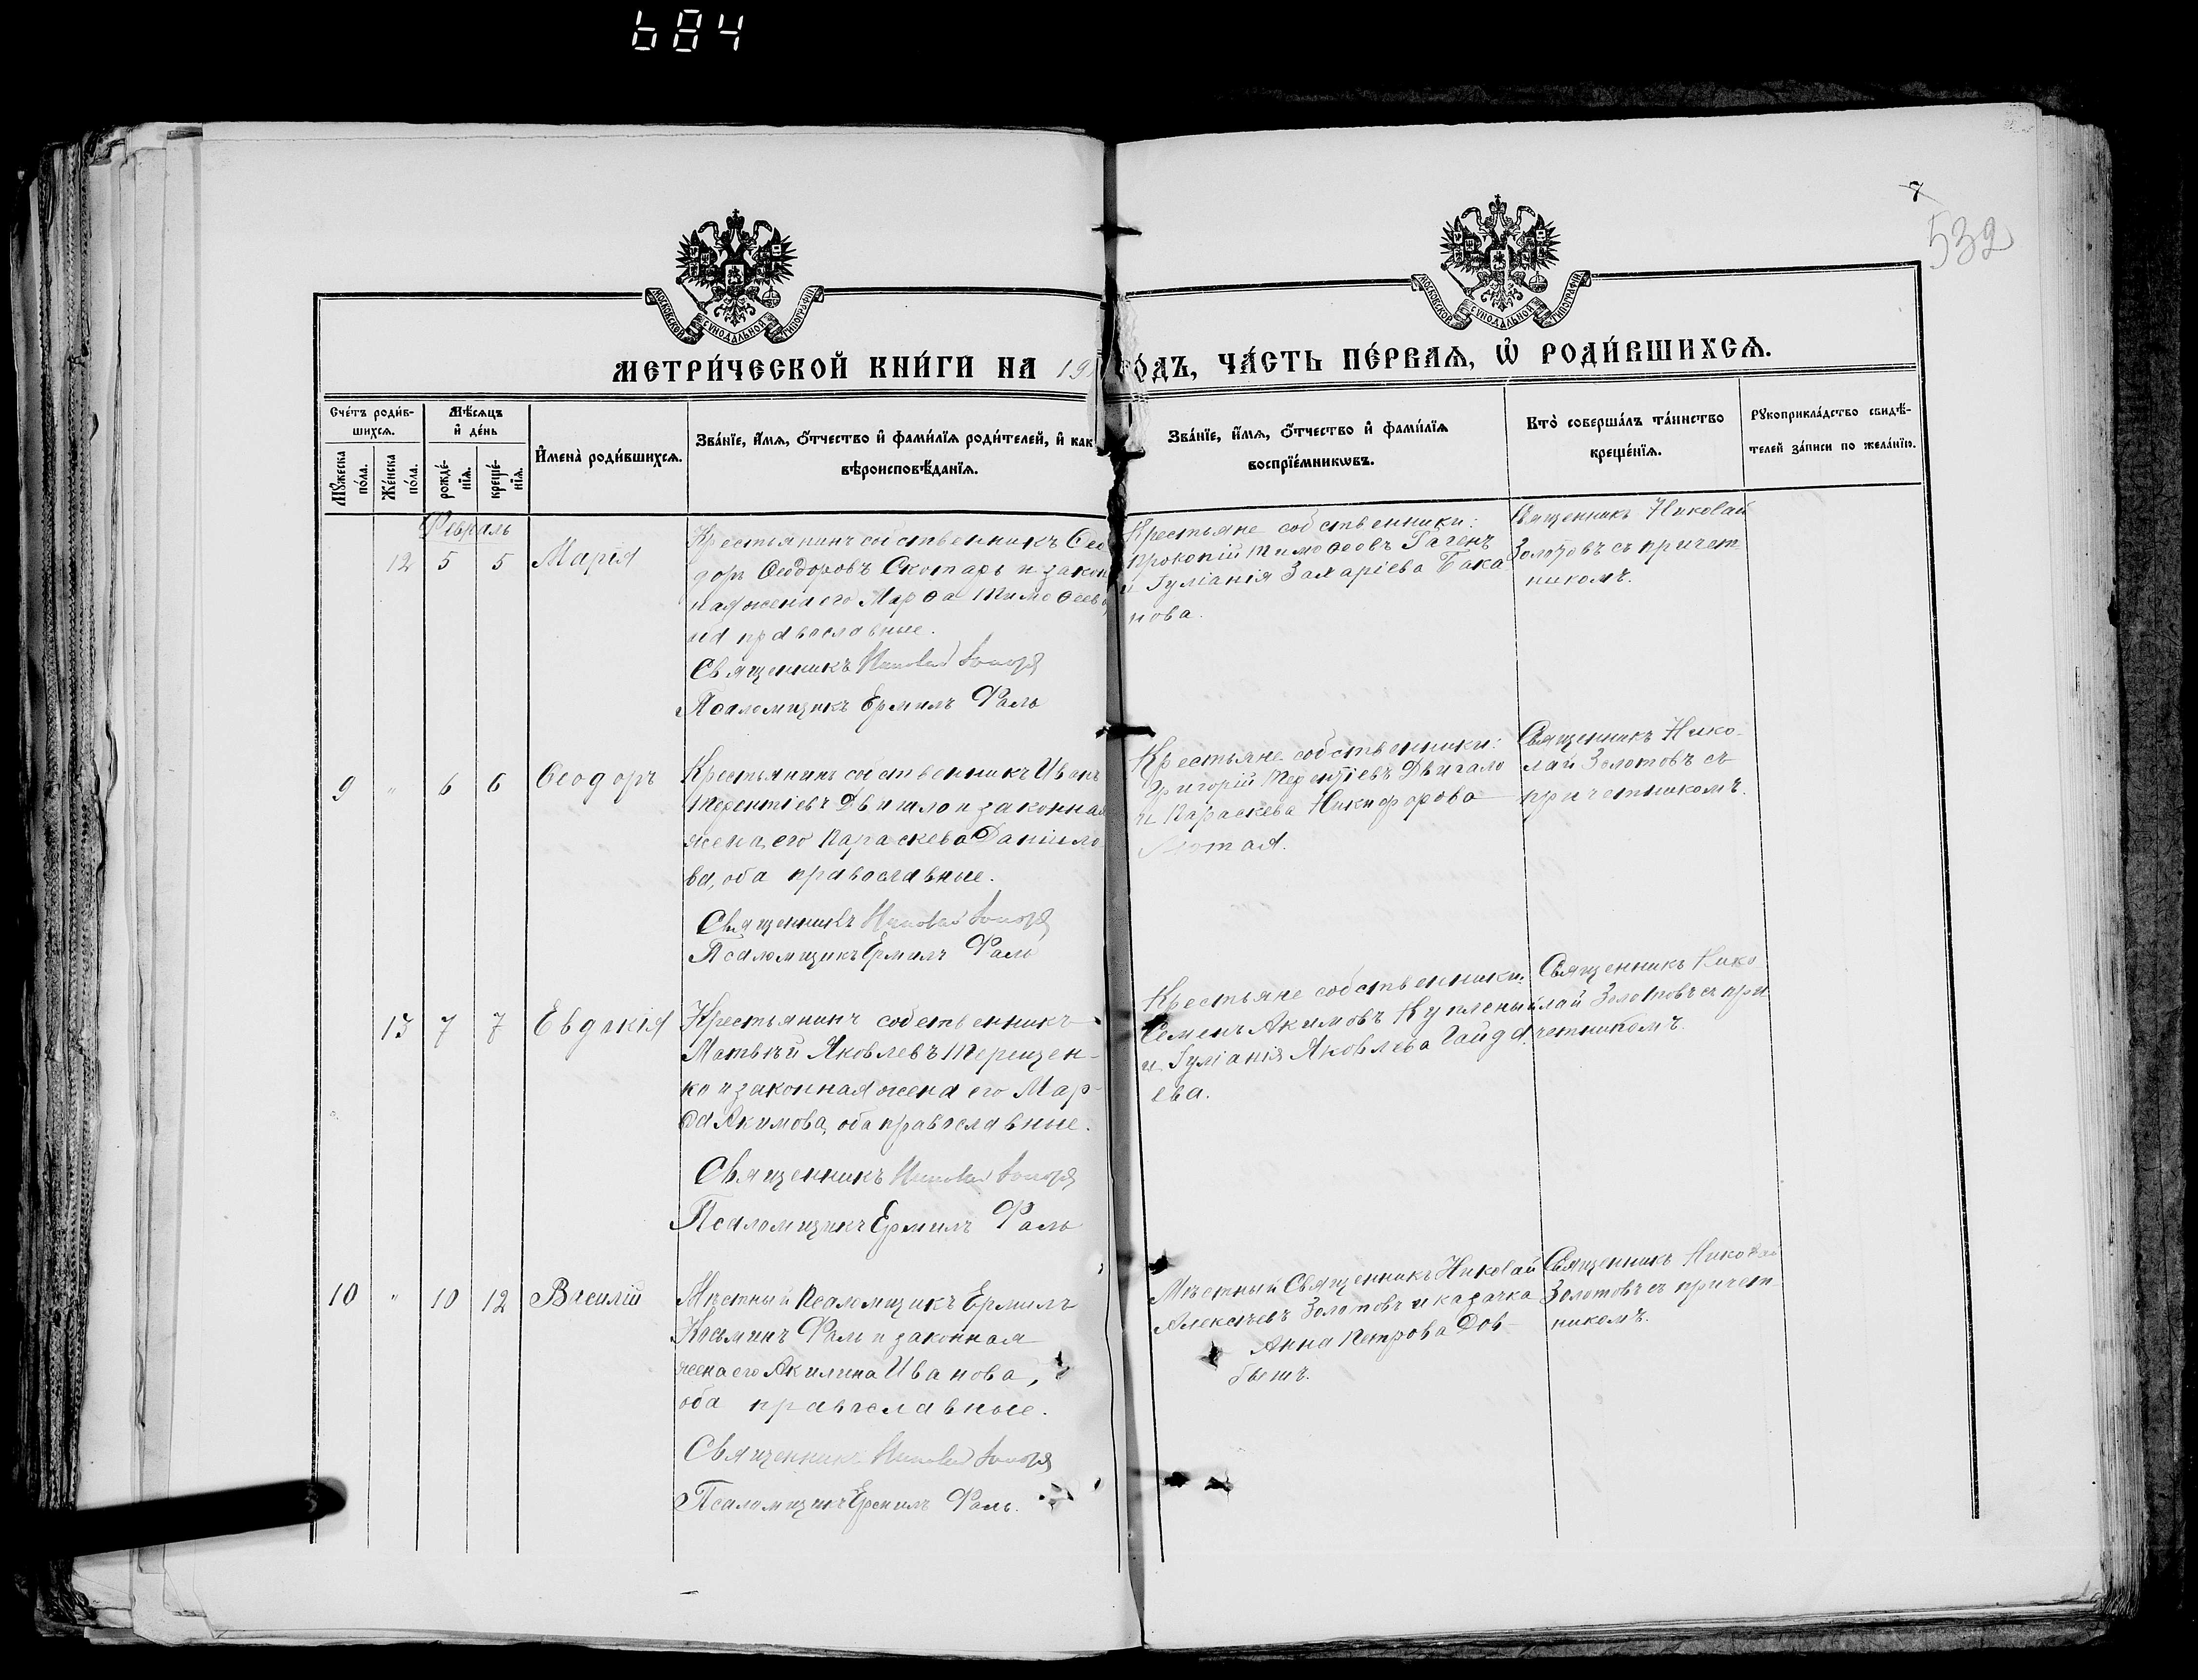 684
7
532
МОСКОВСКОЙ СѴНОДАЛЬНОЙ ТИПОГРАФІИ
МОСКОВСКОЙ СѴНОДАЛЬНОЙ ТИПОГРАФІИ
МЕТРИ́ЧЕСКОЙ КНИ́ГИ НА 19
ГО́ДЪ, ЧА́СТЬ ПЕ́РВАѦ, Ѡ҆ РОДИ́ВШИХСѦ.
Сче́тъ роди́в-
шихсѧ.
Мꙋ́жеска по́ла.
Же́нска по́ла.
Мѣ́сѧцъ
и҆ де́нь
рожде́-
нїѧ.
креще́-
нїѧ.
И҆мена̀ роди́вшихсѧ.
Зва́нїе, и҆́мѧ, ѻ҆́тчество и҆ фами́лїѧ роди́телей, и҆ как
вѣроисповѣ́данїѧ.
Зва́нїе, и҆́мѧ, ѻ҆́тчество и҆ фами́лїѧ
воспрїе́мникѡвъ.
Кто̀ соверша́лъ та́инство
креще́нїѧ.
Рꙋкоприкла́дство свидѣ́-
телей за́писи по жела́нїю.
Февраль
12 5 5 Марія
Крестьянинъ собственникъ Ѳео
доръ Ѳеодоровъ Скотарь и закон
ная жена его Марѳа Тимоѳеева
православные.
Священникъ Николай
Псаломщикъ Ермилъ Фаль
Крестьяне собственники:
Прокопій Тимоѳеовъ
и Іуліанія Захаріева Бака
нова.
Священникъ Николай
Золотовъ съ причет
никомъ.
9 " 6 6 Ѳеодоръ
Крестьянинъ собственникъ Иванъ
Терентіевъ Двигало и законная
жена его Параскева Даніило
ва, оба православные.
Священникъ Николай
Псаломщикъ Ермилъ Фаль
Крестьяне собственники:
Григорій Терентіевъ Двигало
и Параскева Никифорова
Священникъ Нико-
лай Золотовъ съ
причетникомъ.
13 7 7 Евдокія
Крестьянинъ собственникъ
Матвѣй Яковлевъ Терещен-
ко и законная жена его Мар-
ѳа Акимова, оба православные.
Священникъ Николай
Псаломщикъ Ермилъ Фаль
Крестьяне собственники:
Семенъ Акимовъ Купленый
и Іуліанія Яковлева Гайда
ева.
Священникъ Нико
лай Золотовъ съ при
четникомъ.
10 " 10 12 Василій
Мѣстный Псаломщикъ Ермилъ
Косминъ Фаль и законная
жена его Акилина Иванова,
оба православные.
Священникъ Николай
Псаломщикъ Ермилъ Фаль.
Мѣстный Священникъ Николай
Алексѣевъ Золотовъ и казачка
Анна Петрова Дов-
бышъ.
Священникъ Николай
Золотовъ съ причет
никомъ.